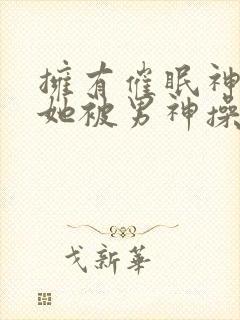 擁有催眠神
她被男神操
戈新華